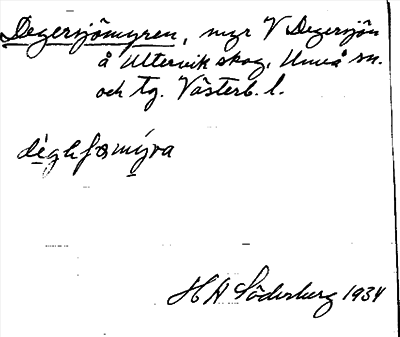 Degersjömyren, myr V Degersjön
å Ultervik skog, Umeå sn.
och tg. Västerb. l.
H A Söderberg 1934